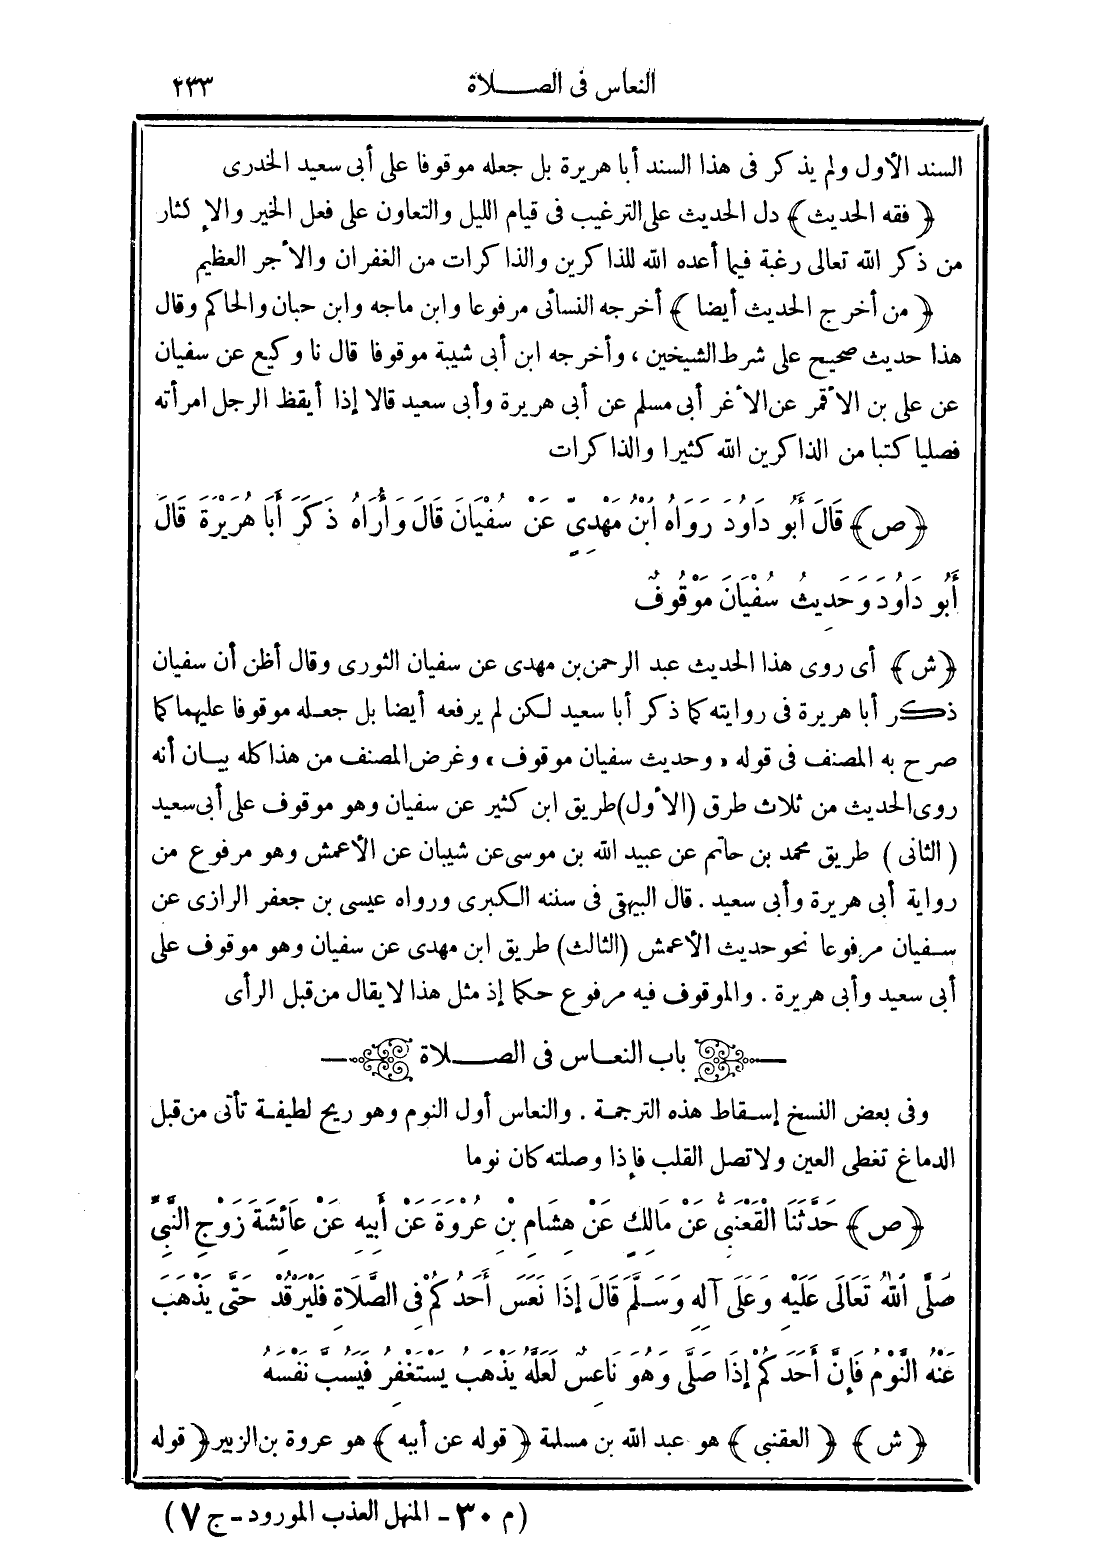 النعاس فى الصلاة
٢٣٣
السند الأول ولم يذكر فى هذا السند أبا هريرة بل جعله موقوفا على أبى سعيد الخدرى
﴿ فقه الحديث ﴾ دل الحديث على الترغيب فى قيام الليل والتعاون على فعل الخير والإكثار
من ذكر الله تعالى رغبة فيما أعده الله للذاكرين والذاكرات من الغفران والأجر العظيم
﴿ من أخرج الحديث أيضا ﴾ أخرجه النسائى مرفوعا وابن ماجه وابن حبان والحاكم وقال
هذا حديث صحيح على شرط الشيخين ، وأخرجه ابن أبى شيبة موقوفا قال نا وكيع عن سفيان
عن على بن الأقمر عن الأغر أبى مسلم عن أبى هريرة وأبى سعيد قالا إذا أيقظ الرجل امرأته
فصليا كتبا من الذاكرين الله كثيرا والذاكرات
﴿ ص ﴾ قَالَ أَبُو دَاوُدَ رَوَاهُ ابْنُ مَهْدِيٍّ عَنْ سُفْيَانَ قَالَ وَأُرَاهُ ذَكَرَ أَبَا هُرَيْرَةَ قَالَ
أَبُو دَاوُدَ وَحَدِيثُ سُفْيَانَ مَوْقُوفٌ
﴿ ش ﴾ أى روى هذا الحديث عبد الرحمن بن مهدى عن سفيان الثورى وقال أظن أن سفيان
ذكر أبا هريرة فى روايته كما ذكر أبا سعيد لكن لم يرفعه أيضا بل جعله موقوفا عليهما كما
صرح به المصنف فى قوله «وحديث سفيان موقوف» وغرض المصنف من هذا كله بيان أنه
روى الحديث من ثلاث طرق (الأول) طريق ابن كثير عن سفيان وهو موقوف على أبى سعيد
( الثانى ) طريق محمد بن حاتم عن عبيد الله بن موسى عن شيبان عن الأعمش وهو مرفوع من
رواية أبى هريرة وأبى سعيد . قال البيهقى فى سننه الكبرى ورواه عيسى بن جعفر الرازى عن
سفيان مرفوعا نحو حديث الأعمش (الثالث) طريق ابن مهدى عن سفيان وهو موقوف على
أبى سعيد وأبى هريرة . والموقوف فيه مرفوع حكما إذ مثل هذا لا يقال من قبل الرأى
باب النعاس فى الصلاة
وفى بعض النسخ إسقاط هذه الترجمة . والنعاس أول النوم وهو ريح لطيفة تأتى من قبل
الدماغ تغطى العين ولا تصل القلب فإذا وصلته كان نوما
﴿ ص ﴾ حَدَّثَنَا الْقَعْنَبِىُّ عَنْ مَالِكٍ عَنْ هِشَامِ بْنِ عُرْوَةَ عَنْ أَبِيهِ عَنْ عَائِشَةَ زَوْجِ النَّبِىِّ
صَلَّى اللهُ تَعَالَى عَلَيْهِ وَعَلَى آلِهِ وَسَلَّمَ قَالَ إِذَا نَعَسَ أَحَدُكُمْ فِى الصَّلَاةِ فَلْيَرْقُدْ حَتَّى يَذْهَبَ
عَنْهُ النَّوْمُ فَإِنَّ أَحَدَكُمْ إِذَا صَلَّى وَهُوَ نَاعِسٌ لَعَلَّهُ يَذْهَبُ يَسْتَغْفِرُ فَيَسُبَّ نَفْسَهُ
﴿ ش ﴾ ﴿ العقنبى ﴾ هو عبد الله بن مسلمة ﴿ قوله عن أبيه ﴾ هو عروة بن الزبير ﴿ قوله
(م ٣٠ - المنهل العذب المورود - ج ٧)